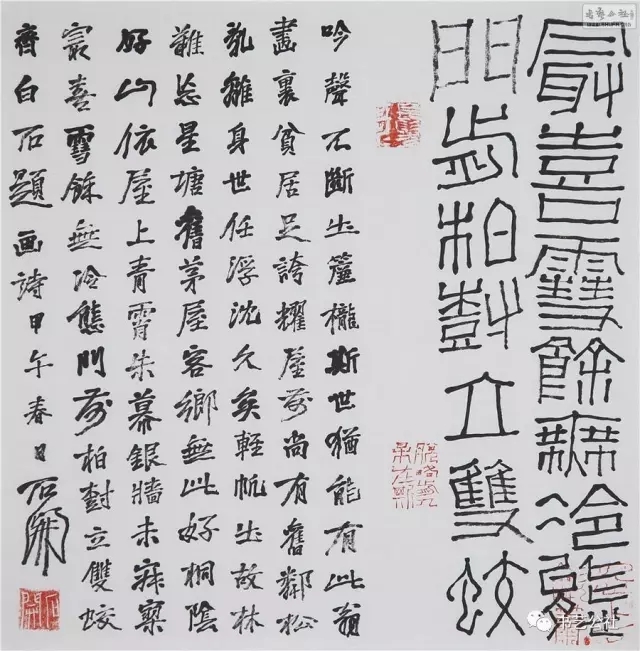 最喜雪餘無冷態
門前柏樹立雙蛟
吟聲不斷出簾櫳斯世猶能有此翁
畫裏貧居足誇耀屋前尚有舊鄰松
亂離身世任浮沈久矣輕帆出故林
難忘星塘舊茅屋客鄉無此好桐陰
好山依屋上青霄朱幕銀牆未寂寥
最喜雪餘無冷態門前柏樹立雙蛟
齊白石題画詩甲午春日石開
书艺公社